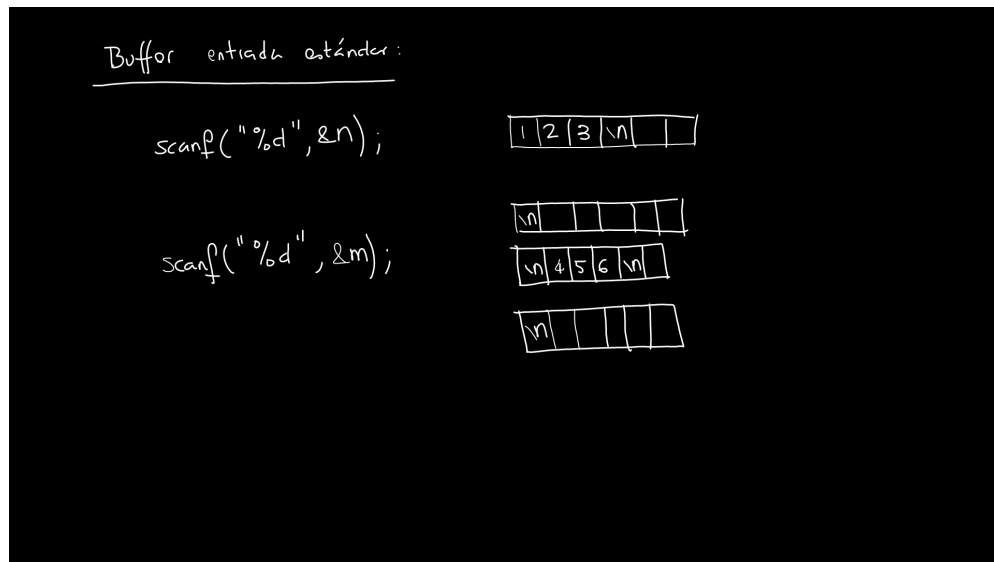 Buffer entrada estándar:
scanf("%d", &n);
1 2 3 \n
\n
scanf("%d", &m);
\n 4 5 6 \n
\n